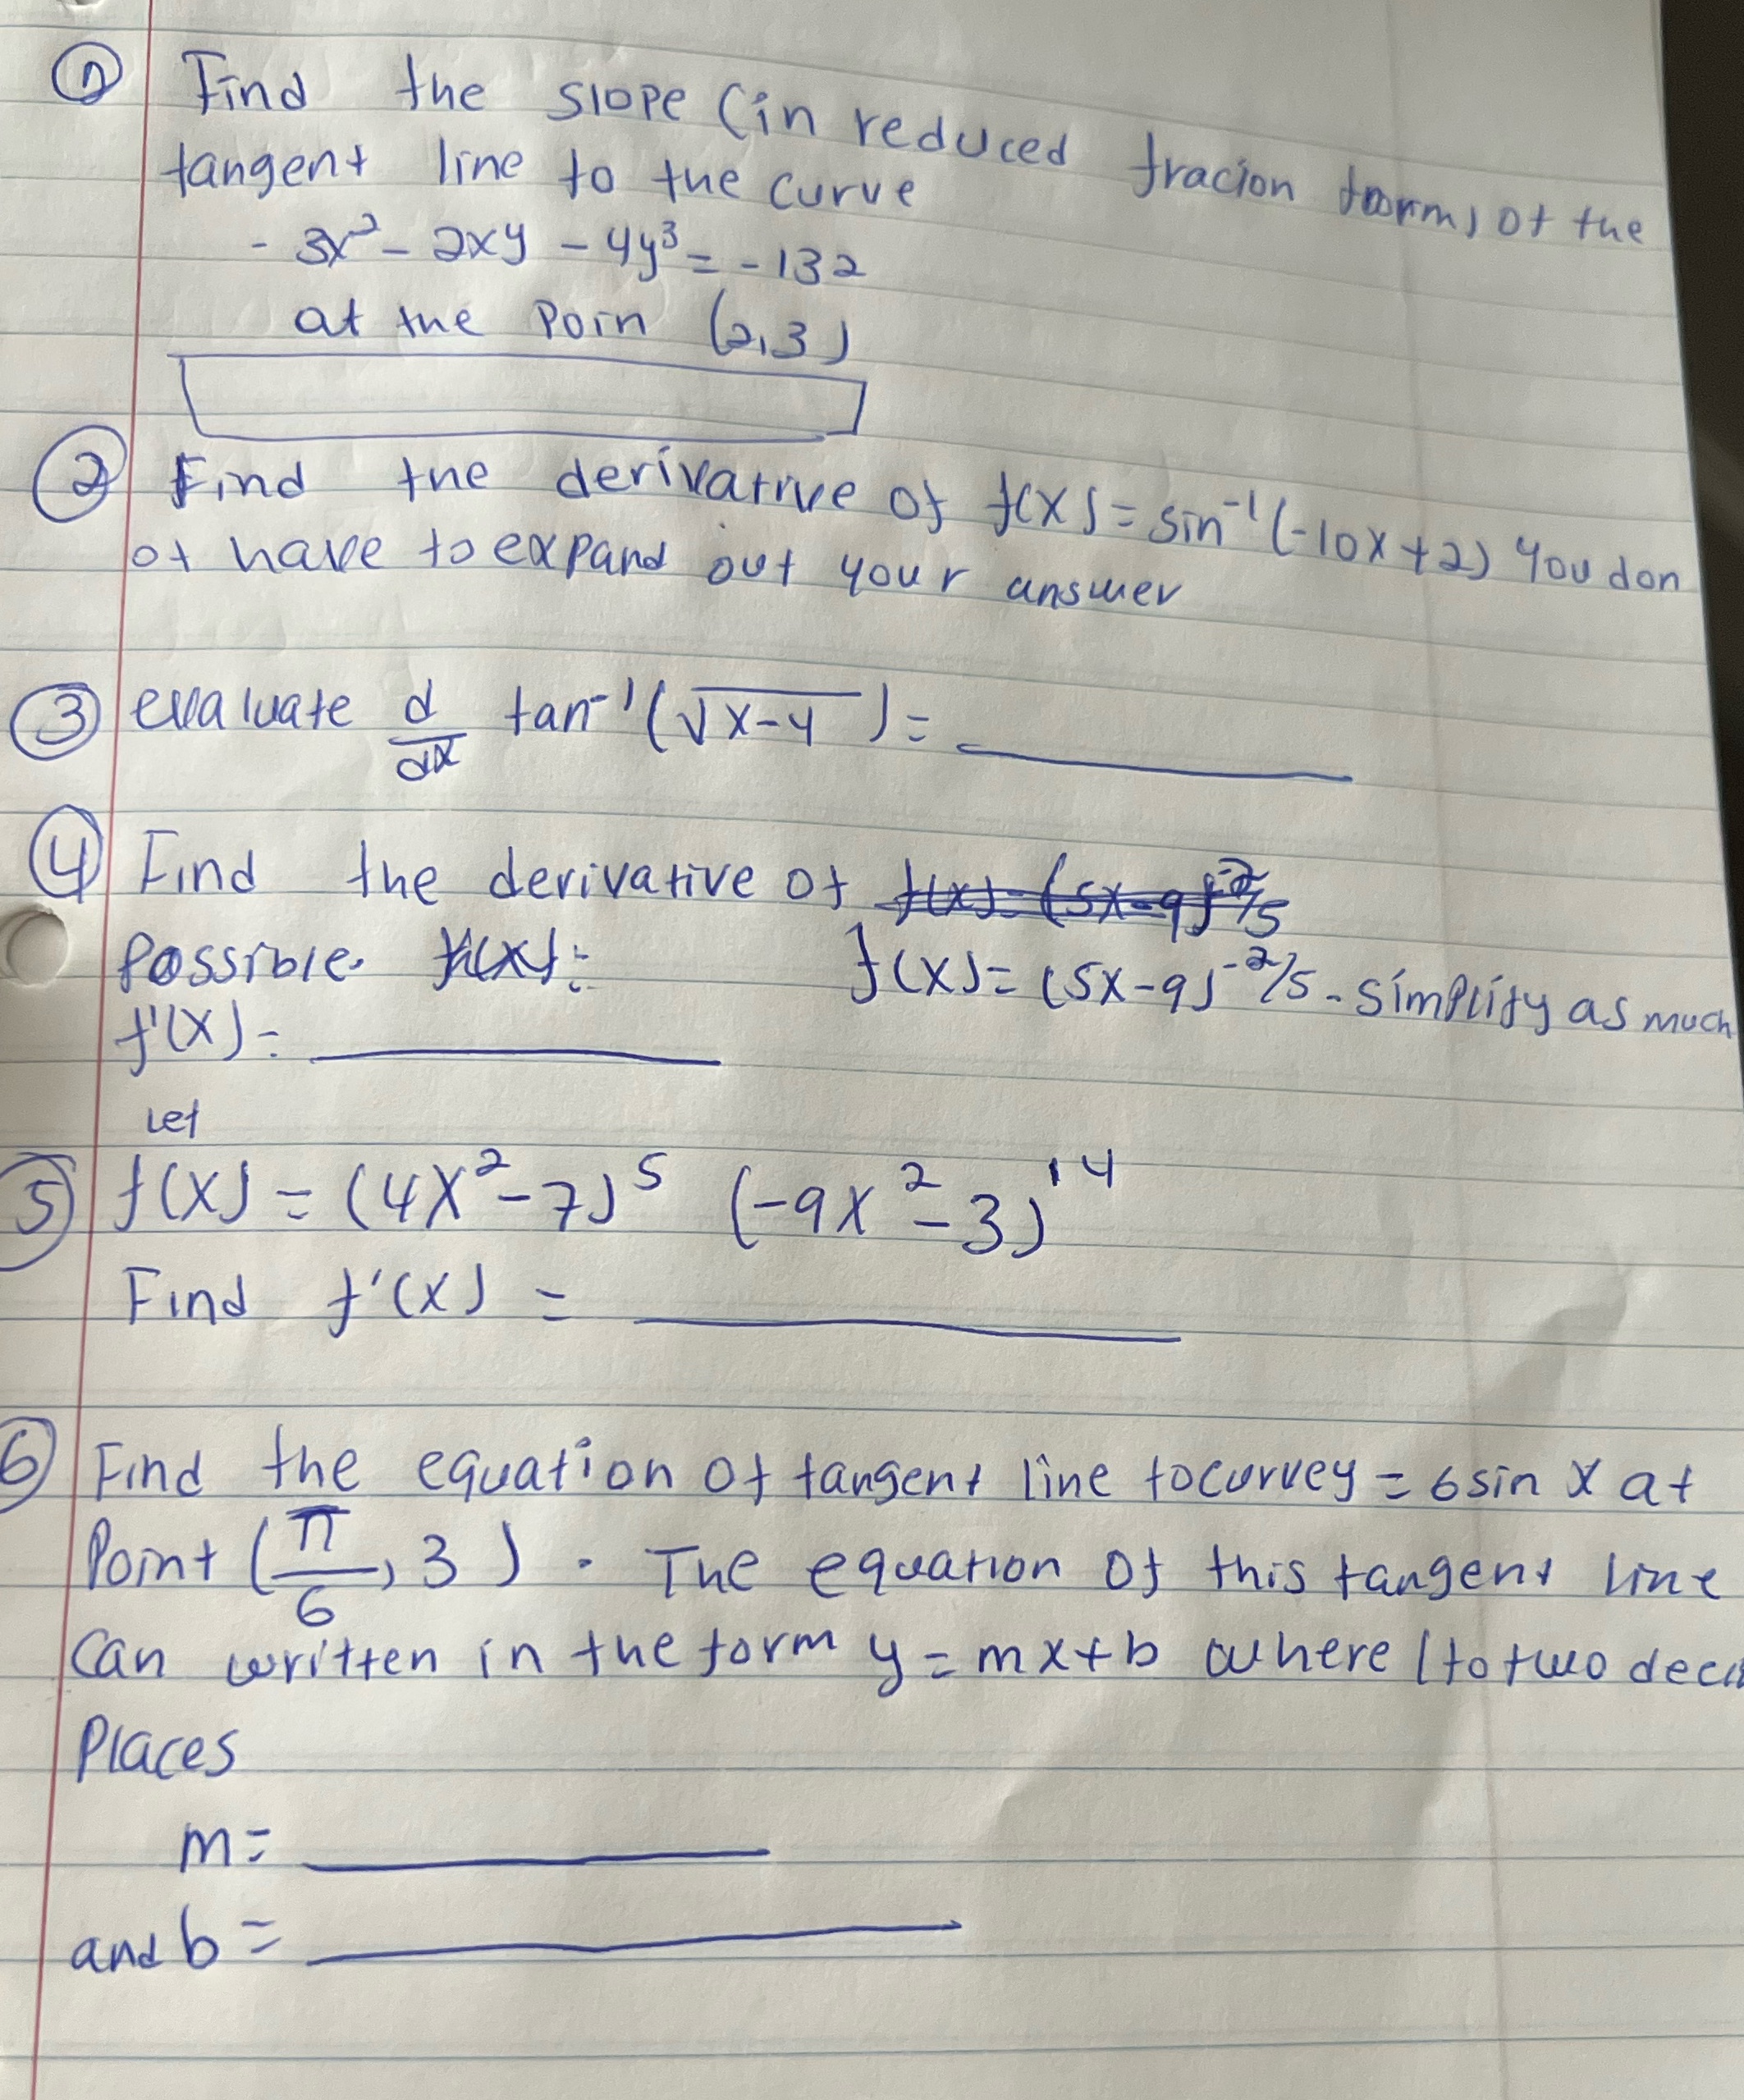 ① Find the slope (in reduced fracion form) of the
tangent line to the curve
- 3x² - 2xy - 4y³ = -132
at the Poin (2,3)
② Find the derivative of f(x) = sin⁻¹(-10x+2) You don
ot have to expand out your answer
③ evaluate d/dx tan⁻¹(√x-4) = ____
④ Find the derivative of f(x) = (5x-9)^-2/5
Possible. f'(x) = f(x) = (5x-9)^-2/5 - Simplify as much
f'(x) = ____
Let
⑤ f(x) = (4x²-7)⁵ (-9x²-3)¹⁴
Find f'(x) = ____
⑥ Find the equation of tangent line to curve y = 6 sin x at
Point (π/6, 3) . The equation of this tangent line
Can written in the form y = mx+b where (to two deci
Places
m = ____
and b = ____